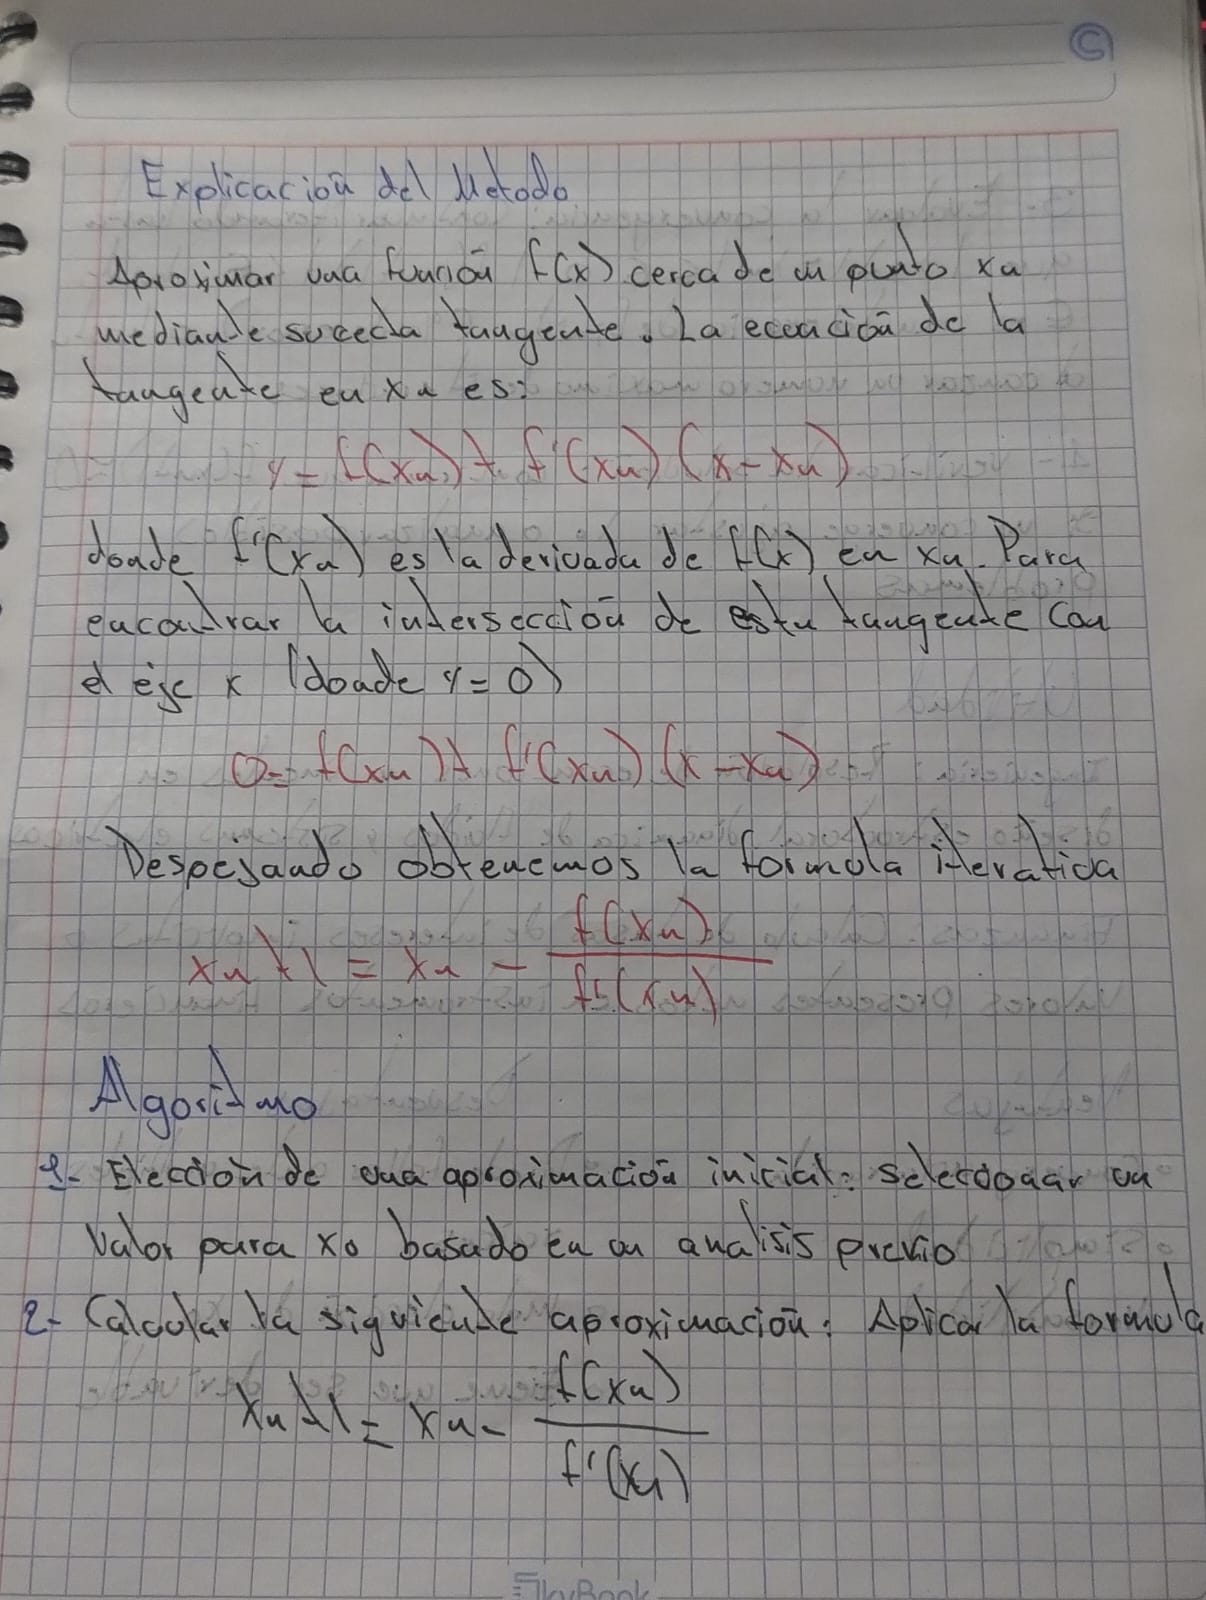 Explicación del Metodo
Aproximar una función f(x) cerca de un punto xn
mediante su recta tangente. La ecuación de la
tangente en xn es:
y = f(xn) + f'(xn) (x - xn)
donde f'(xn) es la derivada de f(x) en xn. Para
encontrar la intersección de esta tangente con
el eje x (donde y = 0)
0 = f(xn) + f'(xn) (x - xn)
Despejando obtenemos la formula iterativa
xn+1 = xn - f(xn) / f'(xn)
Algoritmo
1- Elección de una aproximación inicial: Seleccionar un
Valor para x0 basado en un analisis previo
2- Calcular la siguiente aproximación: Aplicar la formula
xn+1 = xn - f(xn) / f'(xn)
SkyBook